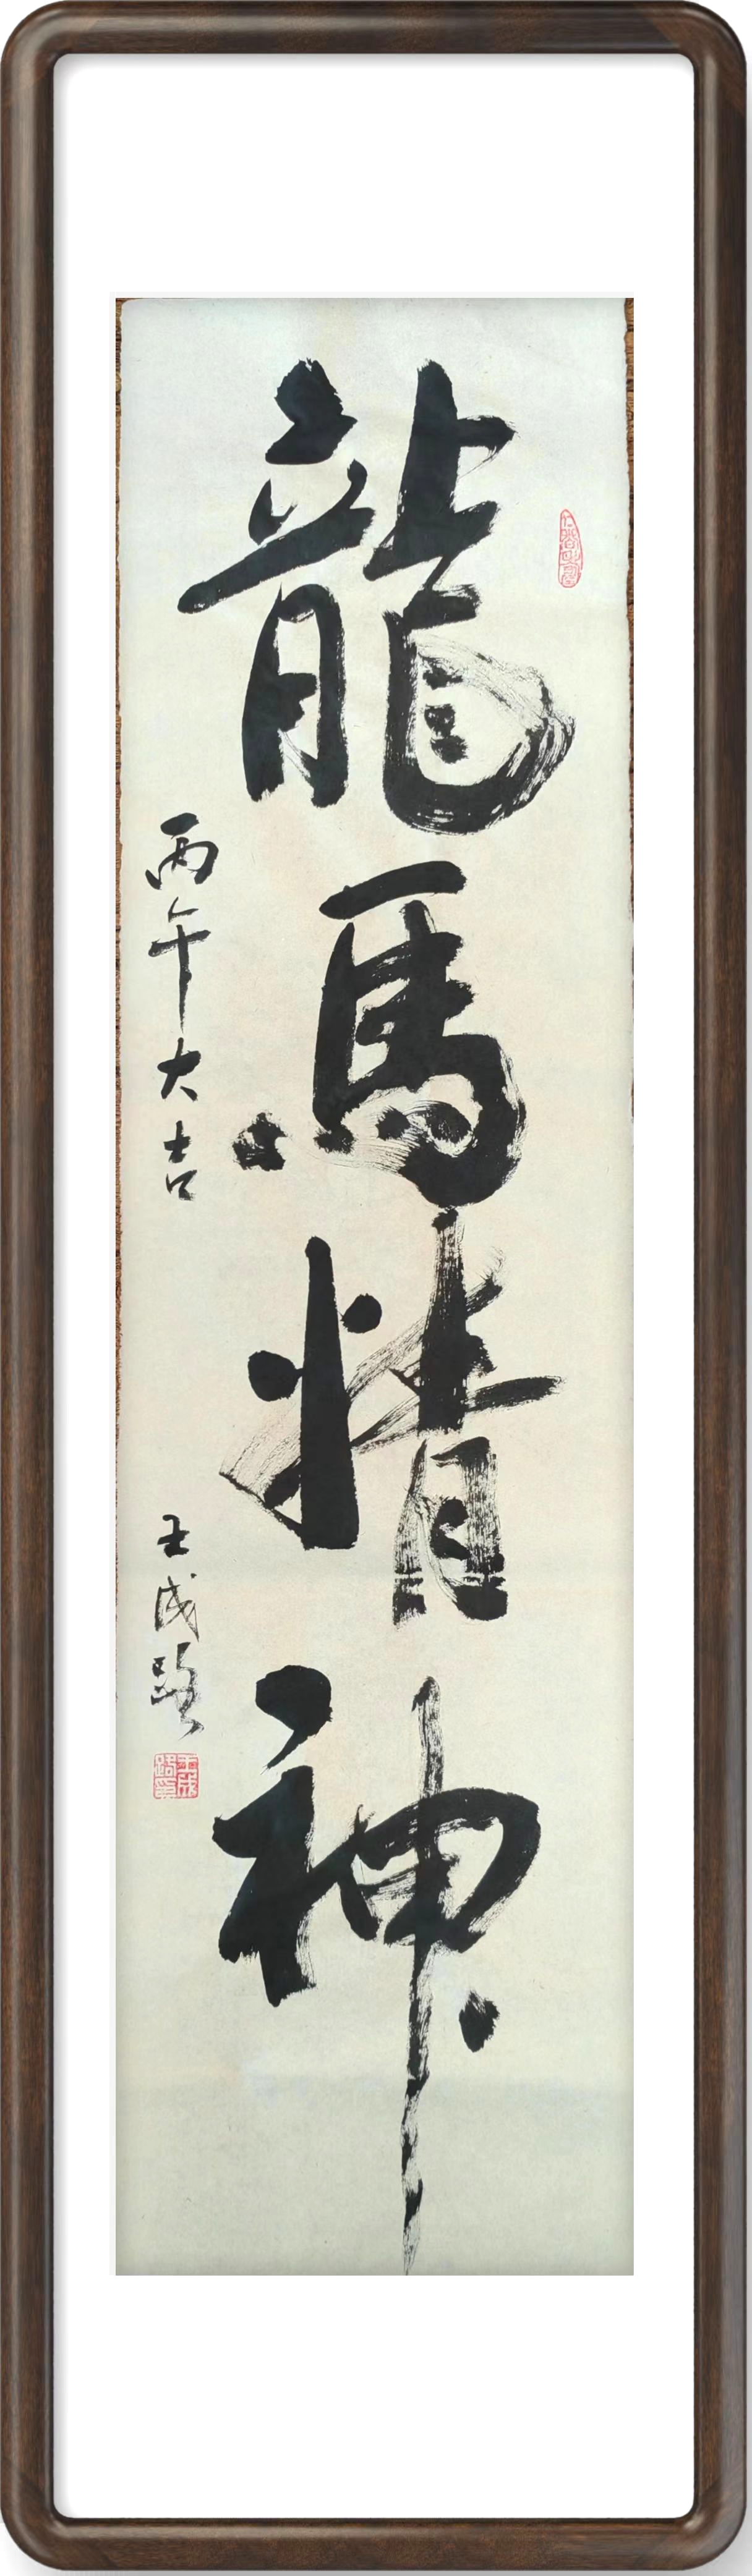 龍馬精神
丙午大吉
王成路
王成路印